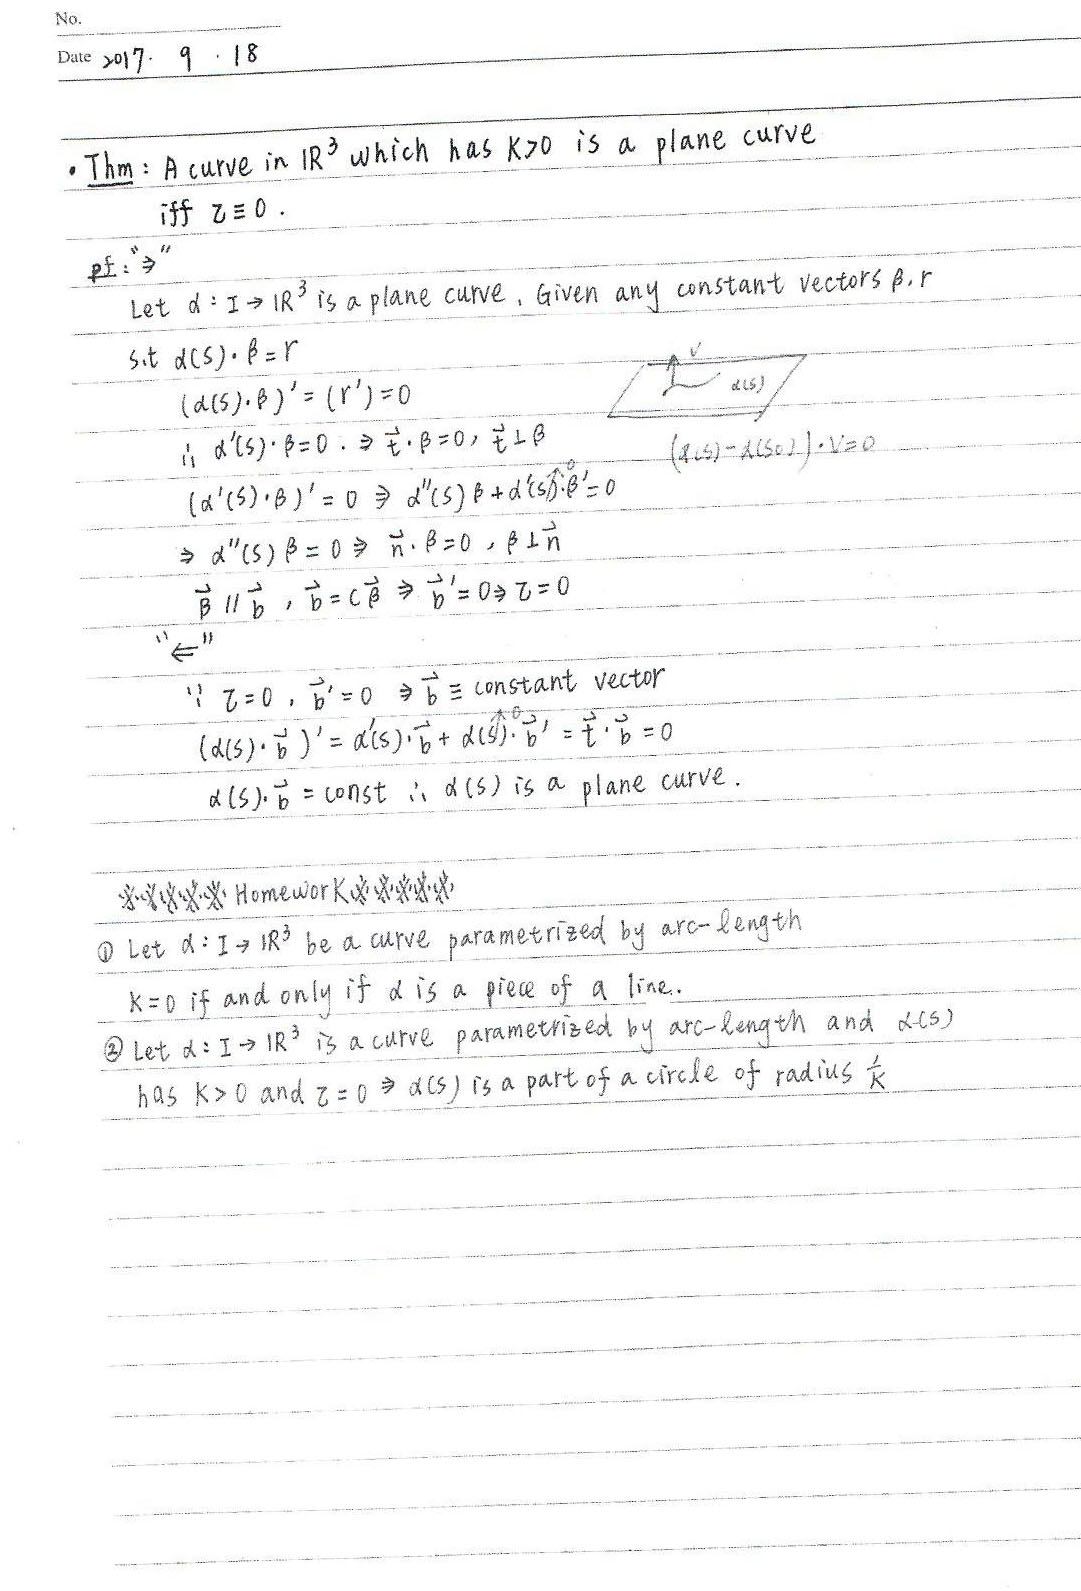 No.
Date 2017. 9 . 18
• Thm : A curve in ℝ³ which has K>0 is a plane curve
iff τ ≡ 0 .
pf : "⇒"
Let α : I → ℝ³ is a plane curve, Given any constant vectors β, r
s.t α(s)·β = r
(α(s)·β)' = (r') = 0
∴ α'(s)·β = 0 . ⇒ t⃗·β = 0, t⃗ ⊥ β
(α'(s)·β)' = 0 ⇒ α''(s) β + α'(s)·β'↗0 = 0
⇒ α''(s) β = 0 ⇒ n⃗·β = 0 , β ⊥ n⃗
β⃗ // b⃗ , b⃗ = cβ⃗ ⇒ b⃗' = 0 ⇒ τ = 0
V
α(s)
(α(s) - α(s₀))·V = 0
"⇐"
∵ τ = 0 , b⃗' = 0 ⇒ b⃗ ≡ constant vector
(α(s)·b⃗)' = α'(s)·b⃗ + α(s)·b⃗'↗0 = t⃗·b⃗ = 0
α(s)·b⃗ = const ∴ α(s) is a plane curve .
※※※※※ Homework ※※※※※
① Let α : I → ℝ³ be a curve parametrized by arc-length
K = 0 if and only if α is a piece of a line..
② Let α : I → ℝ³ is a curve parametrized by arc-length and α(s)
has K > 0 and τ = 0 ⇒ α(s) is a part of a circle of radius 1/K